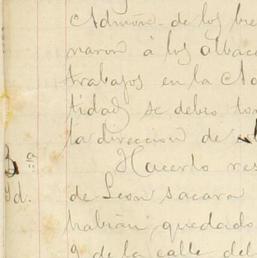 Admōn. de los bie
naron á los albace
trabajos en la Ad
tidad se debió to
la direccion de
3ª
Hacerlo res
Id.
de Leon sacara
habian quedado
9 de la calle del